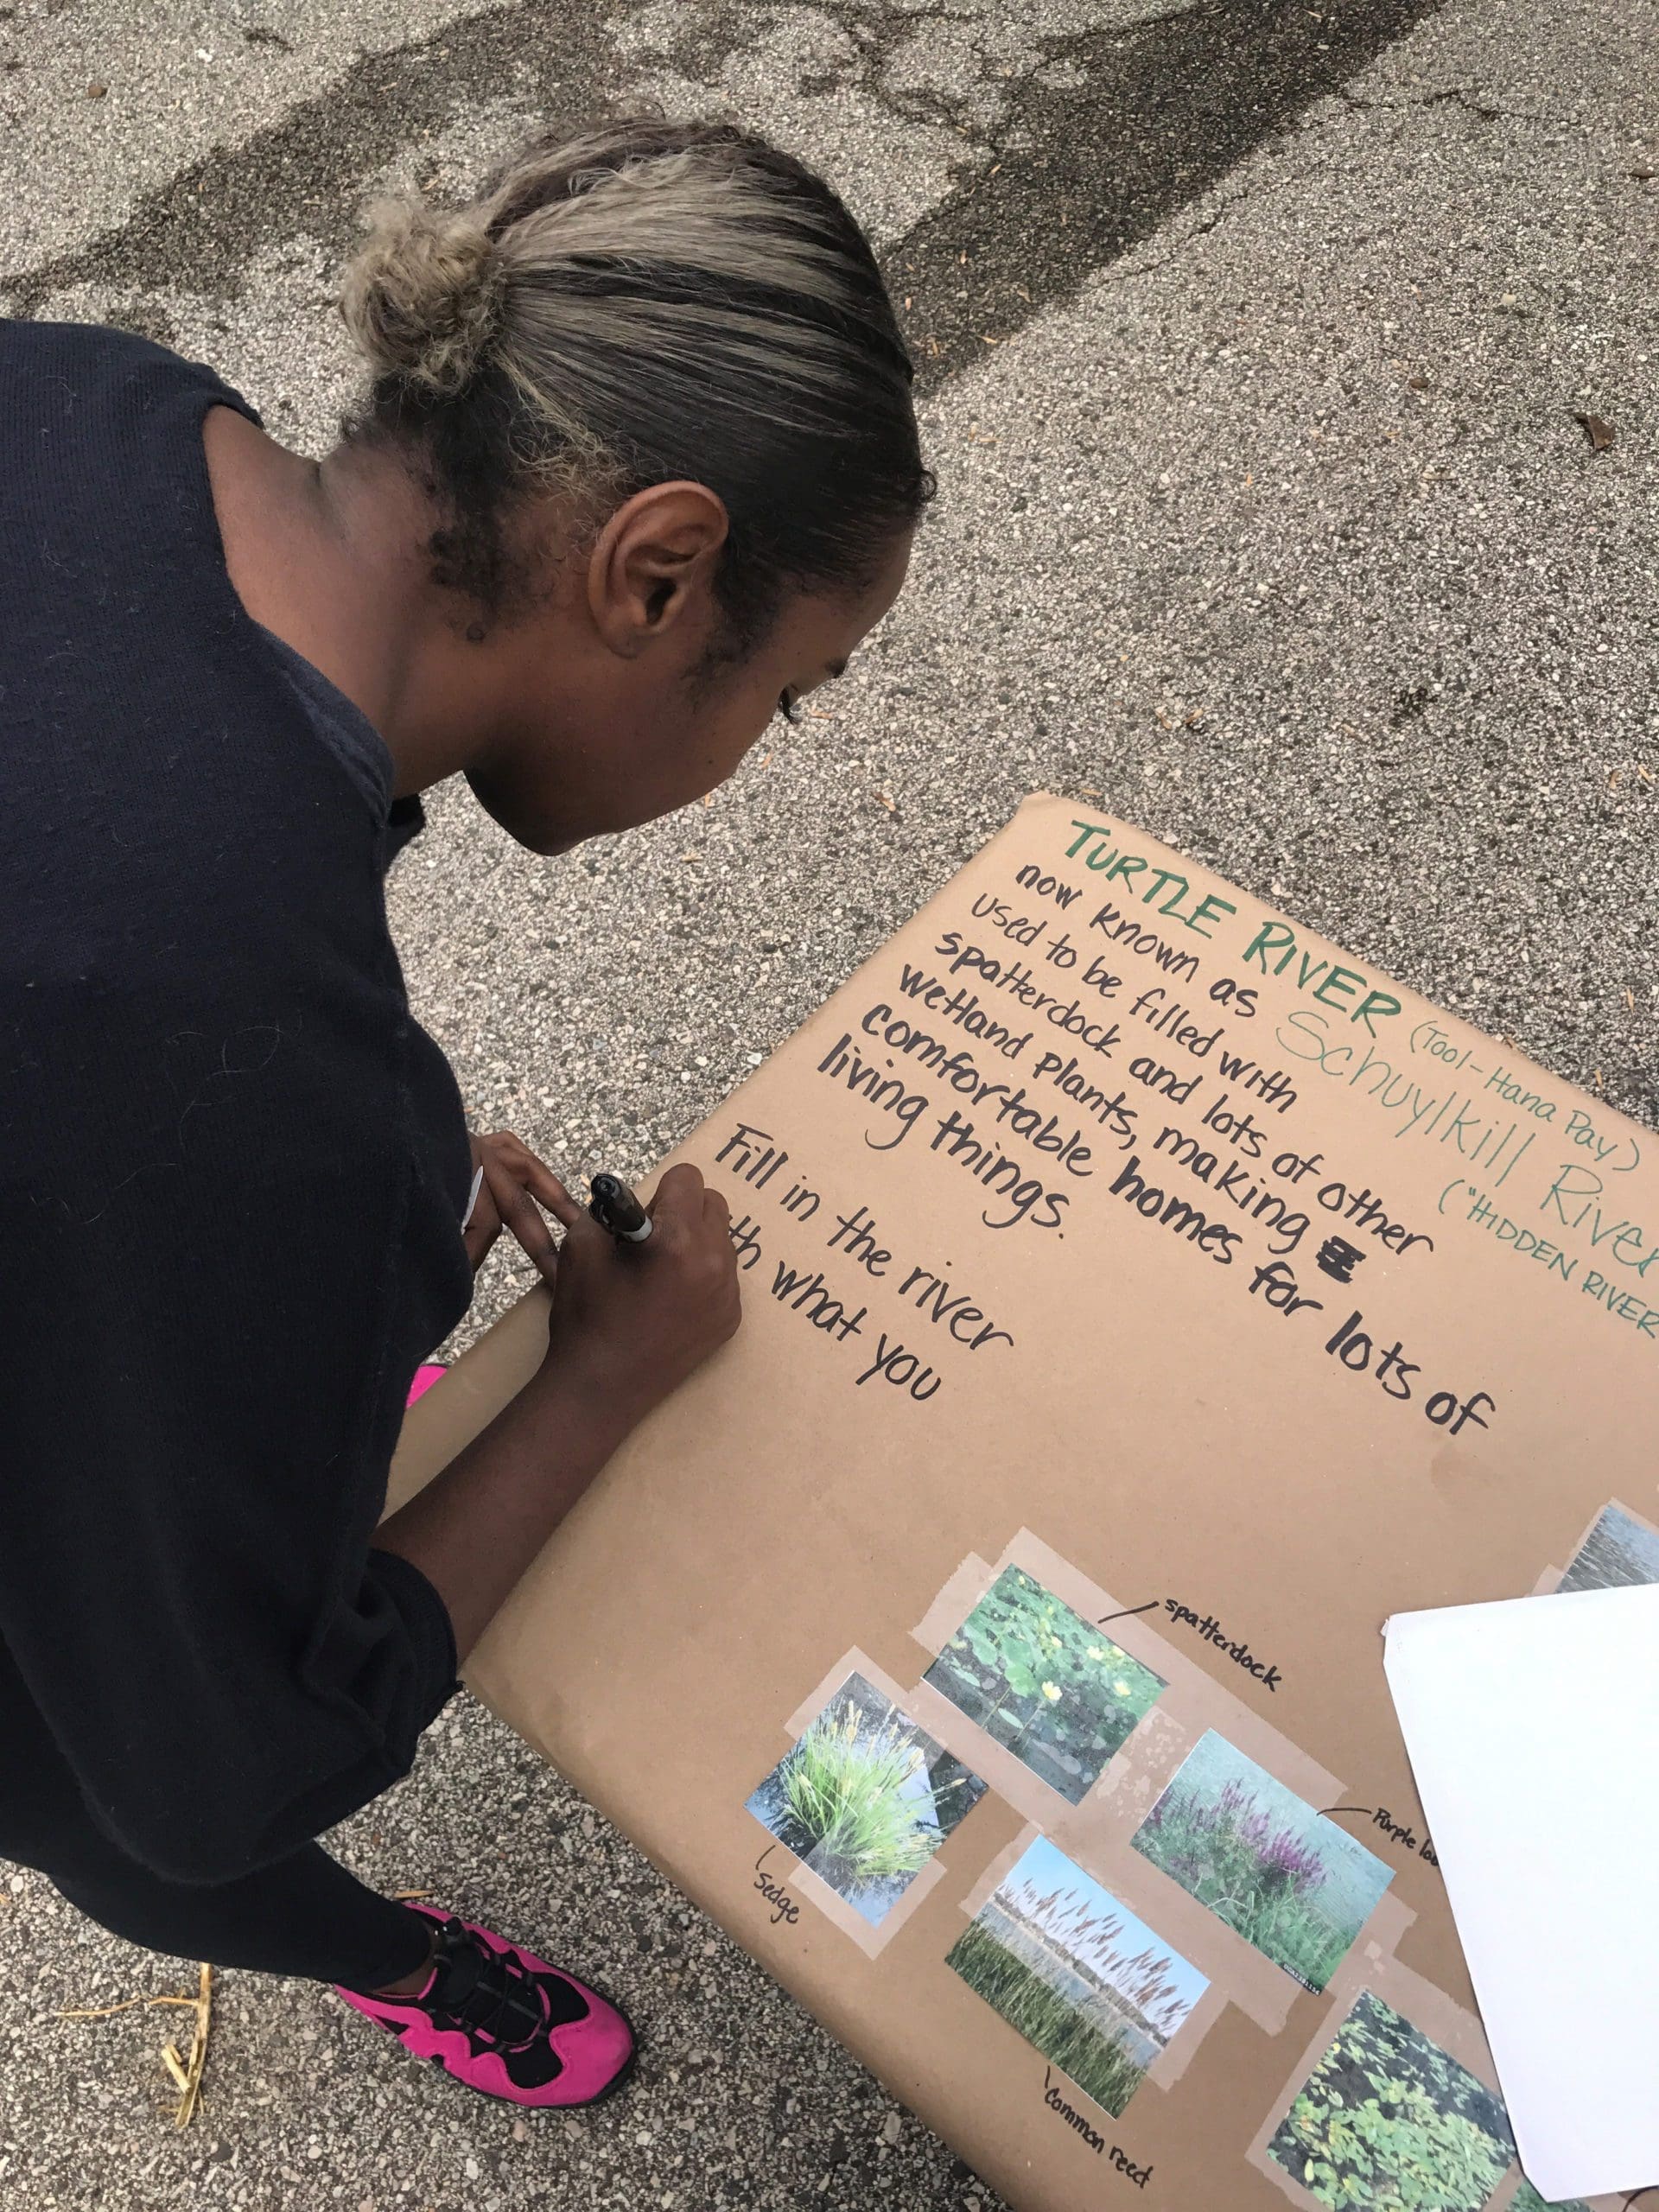 TURTLE RIVER (Tool-Hana Pay)
now known as Schuylkill River
("HIDDEN RIVER
used to be filled with
spatterdock and lots of other
wetland plants, making
comfortable homes for lots of
living things.
Fill in the river
th what you
spatterdock
Purple
sedge
common reed